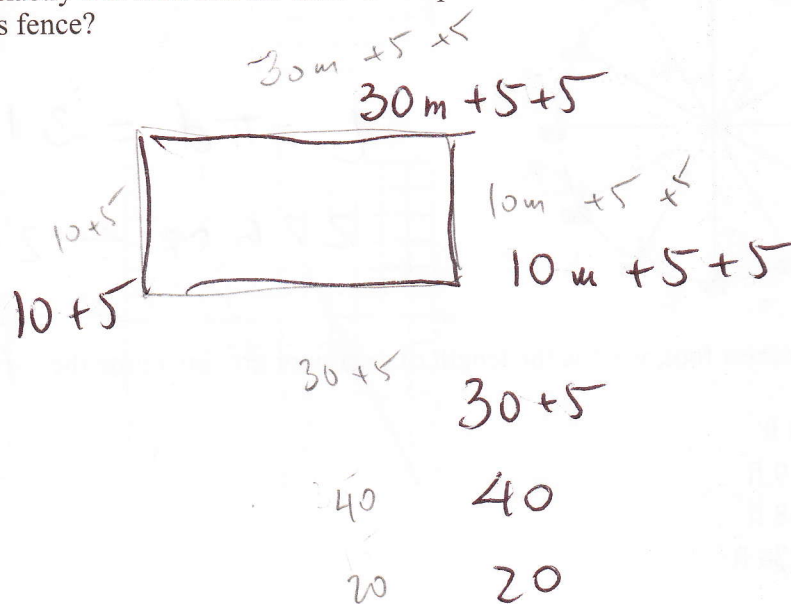 s fence?
30m +5 +5
30m +5+5
10+5
10m +5 +5
10+5
10m +5+5
30+5
30+5
40 40
20 20